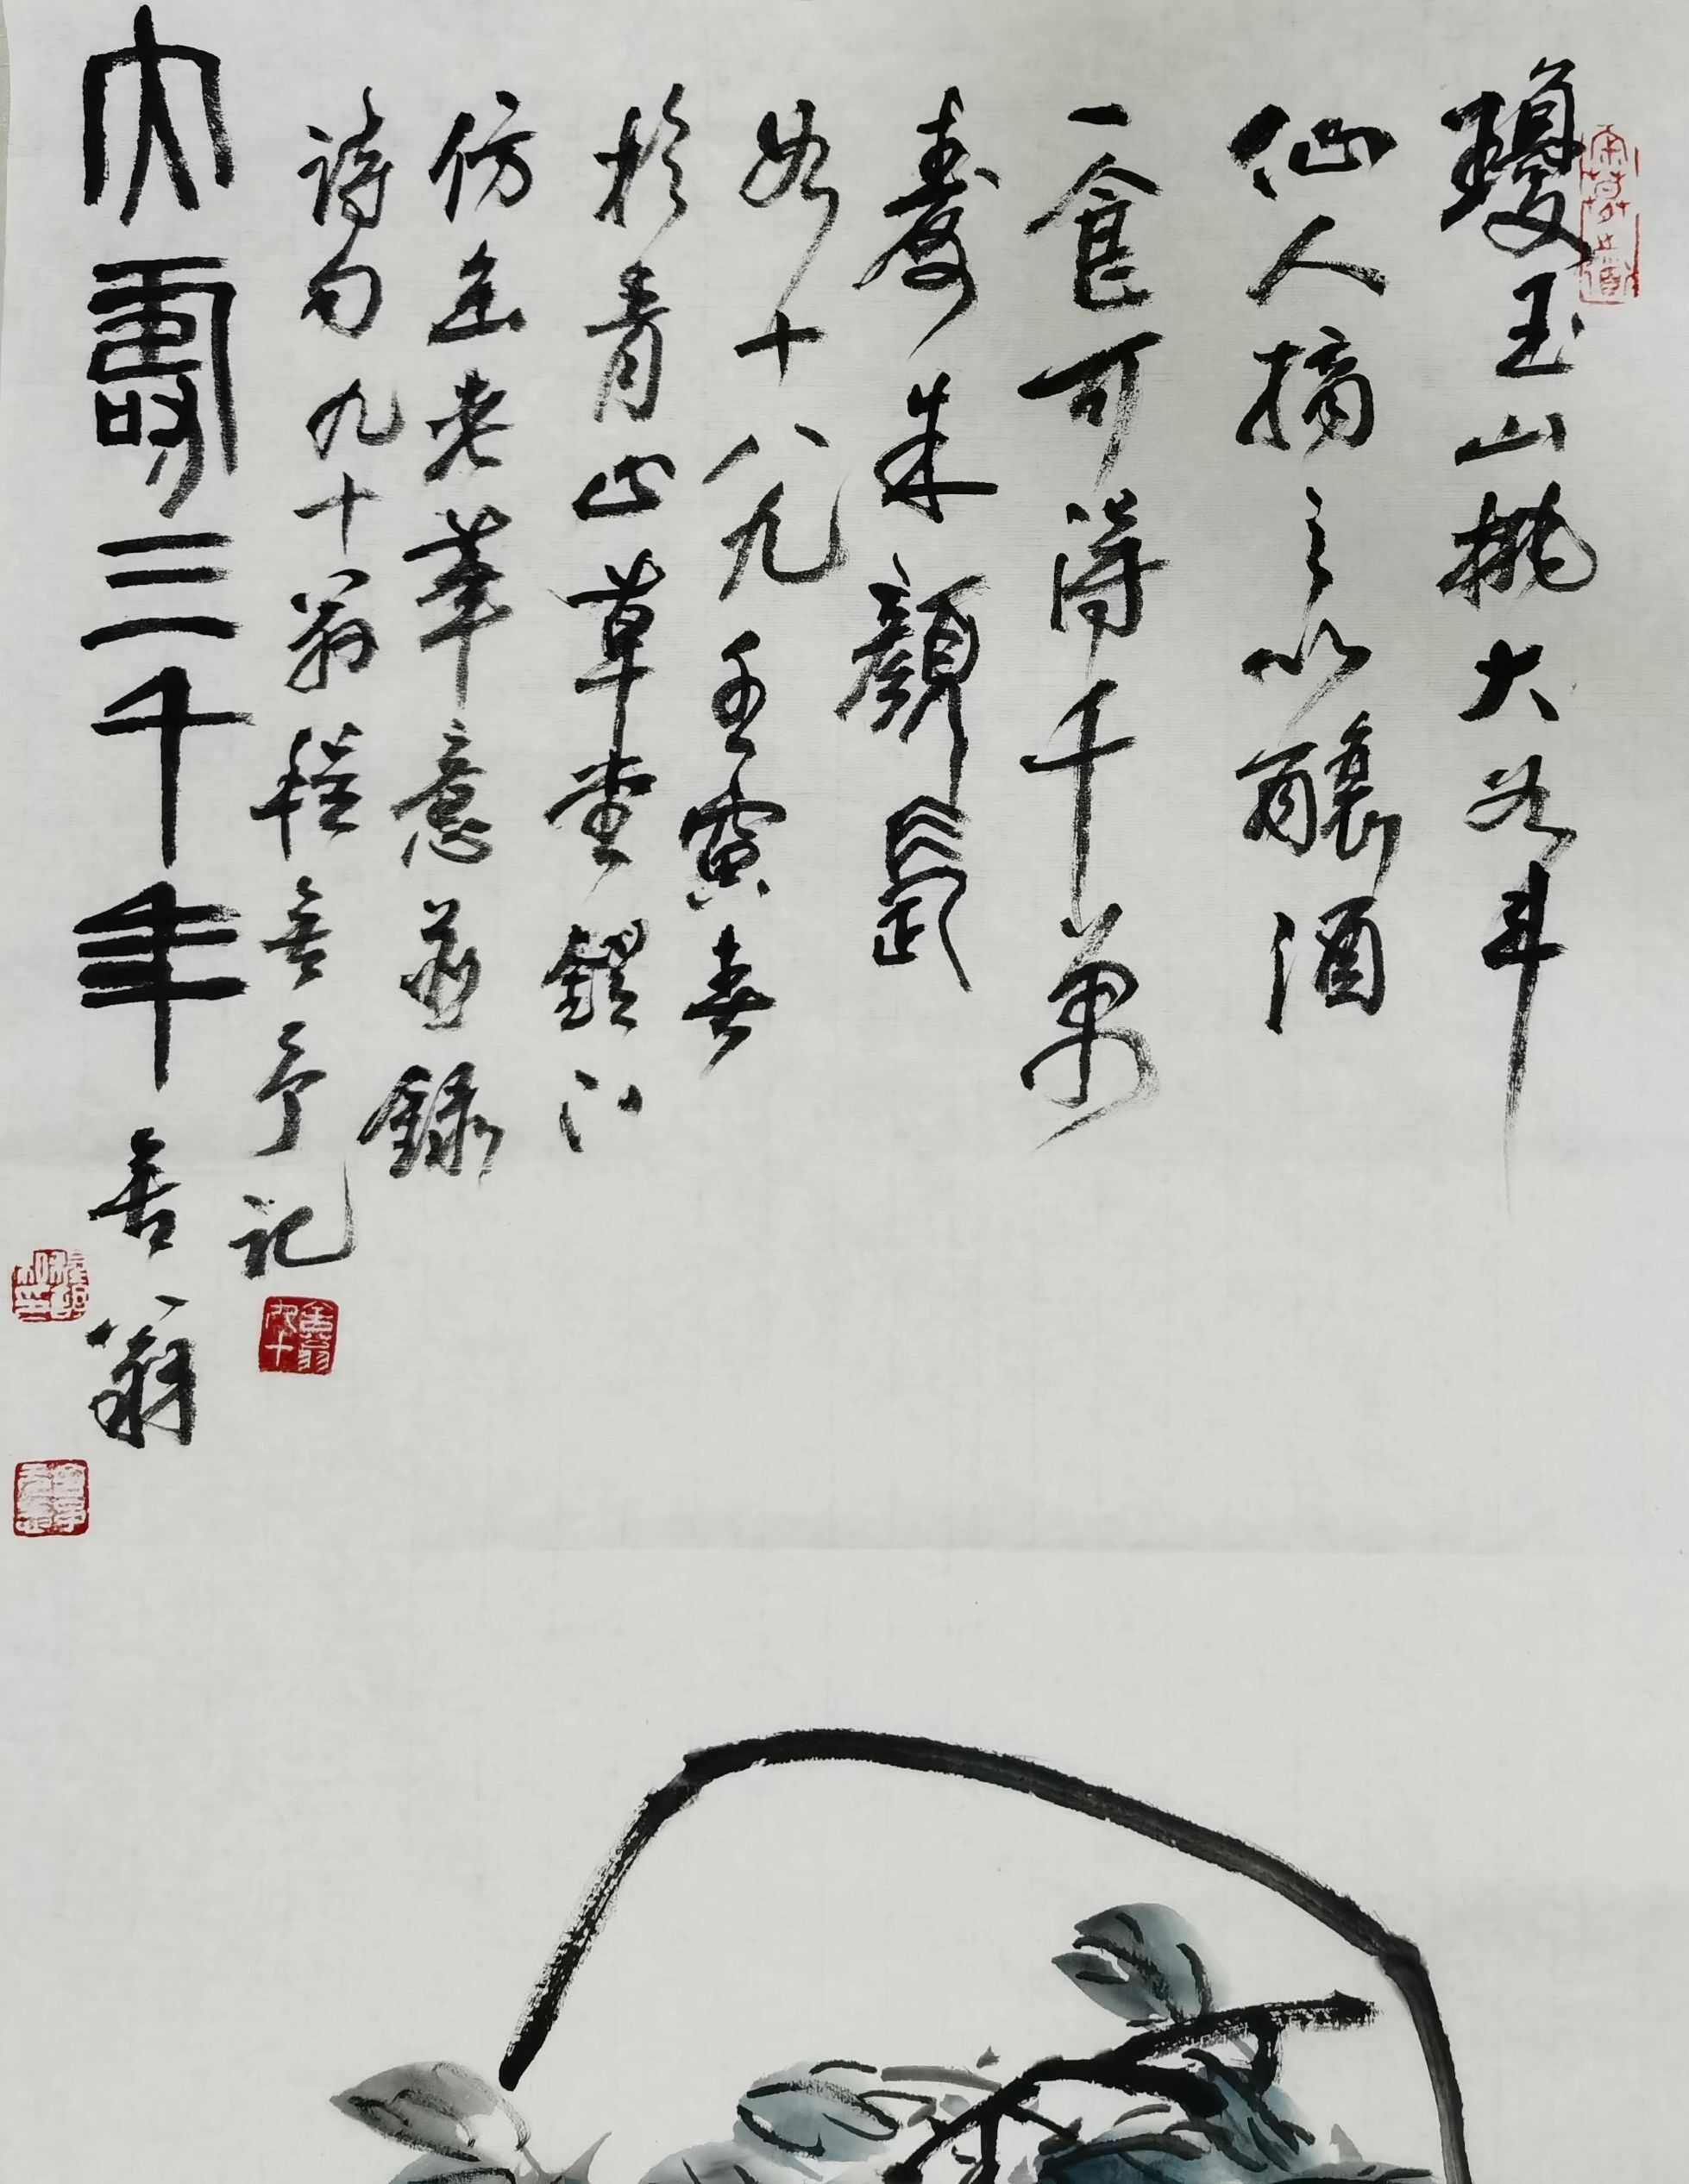 瓊玉山桃大如斗
仙人摘之以釀酒
一食可得千萬
壽朱顏長
如十八九 壬寅春
於青山草堂鐙下
仿缶老筆意並錄
詩句九十翁程舍予記
大壽三千年 舍翁
舍翁九十